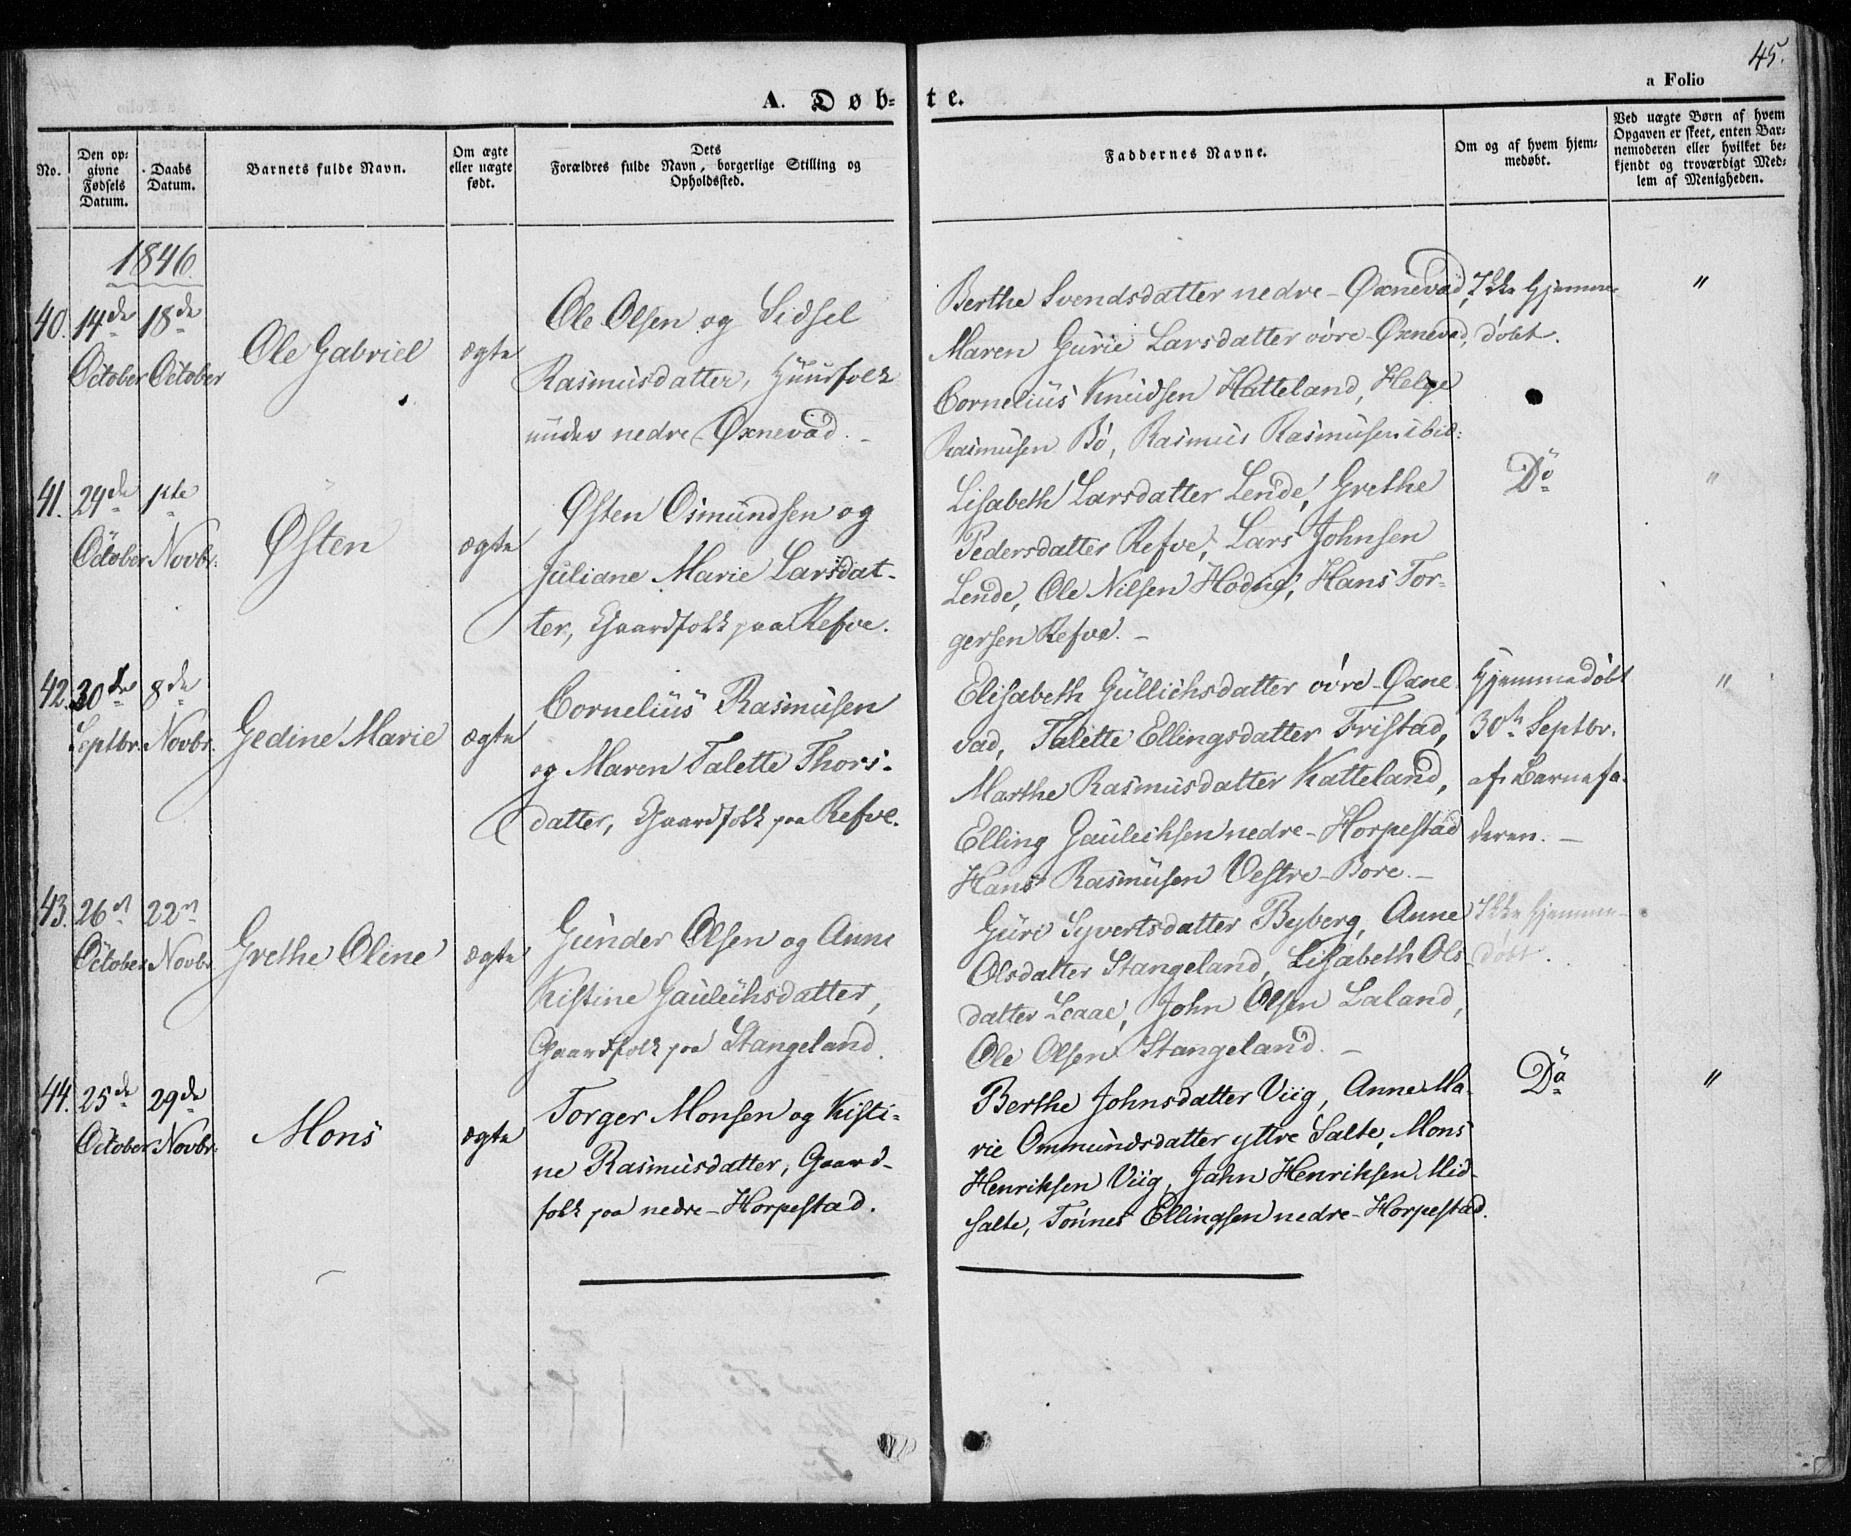 45.
A. Døbte.
a Folio
No.
Den op-
givne
Fødsels
Datum.
Daabs
Datum.
Barnets fulde Navn.
Om ægte
eller uægte
født.
Dets
Forældres fulde Navn, borgerlige Stilling og
Opholdssted.
Faddernes Navne.
Om og af hvem hjem-
medøbt.
Ved uægte Børn af hvem
Opgaven er skeet, enten Bar-
nemoderen eller hvilket be-
kjendt og troværdigt Med-
lem af Menigheden.
1846.
40.
14de
October
18de
October
Ole Gabriel
ægte
Ole Olsen og Sidsel
Rasmusdatter, Huusfolk
under nedre-Øxnevad. -
Berthe Svendsdatter nedre-Øxnevad,
Maren Gurie Larsdatter øvre-Øxnevad,
Cornelius Knudsen Hatteland, Helge
Rasmusen Bø, Rasmus Rasmusen ibid:
Ikke Hjemme-
døbt.
"
41.
24de
October
1ste
Novbr.
Østen
ægte
Østen Osmundsen og
Juliane Marie Larsdat-
ter, Gaardfolk paa Refve.
Lisabeth Larsdatter Lende, Grethe
Pedersdatter Refve, Lars Johnsen
Lende, Ole Nilsen Hodne, Hans Tor-
gersen Refve. -
Do
"
42.
30te
Septbr.
8de
Novbr.
Gedine Marie
ægte
Cornelius Rasmusen
og Maren Talette Thors-
datter, Gaardfolk paa Refve.
Elisabeth Gullichsdatter øvre-Øxne
vad, Talette Ellingsdatter Fristad,
Marthe Rasmusdatter Hatteland,
Elling Gauleiksen nedre-Horpestad
Hans Rasmusen Vestre-Bore. -
Hjemmedøbt
30te Septbr.
af Barnefa-
deren. -
"
43.
26de
October
22de
Novbr.
Grethe Oline
ægte
Gunder Olsen og Anne
Kistine Gauleiksdatter,
Gaardfolk paa Stangeland.
Guri Syvertsdatter Byberg, Anne
Olsdatter Stangeland, Lisabeth Ols
datter Leaae, John Olsen Laland,
Ole Olsen Stangeland. -
Ikke Hjemme-
døbt.
44.
25de
October
29de
Novbr.
Mons
ægte
Torger Monsen og Kisti-
ne Rasmusdatter, Gaard-
folk paa nedre-Horpestad.
Berthe Johnsdatter Viig, Anne Ma-
rie Ommundsdatter yttre Salte, Mons
Henriksen Viig, Jahn Henriksen Mid-
salte, Tønnes Ellingsen nedre-Horpestad.
Do
"